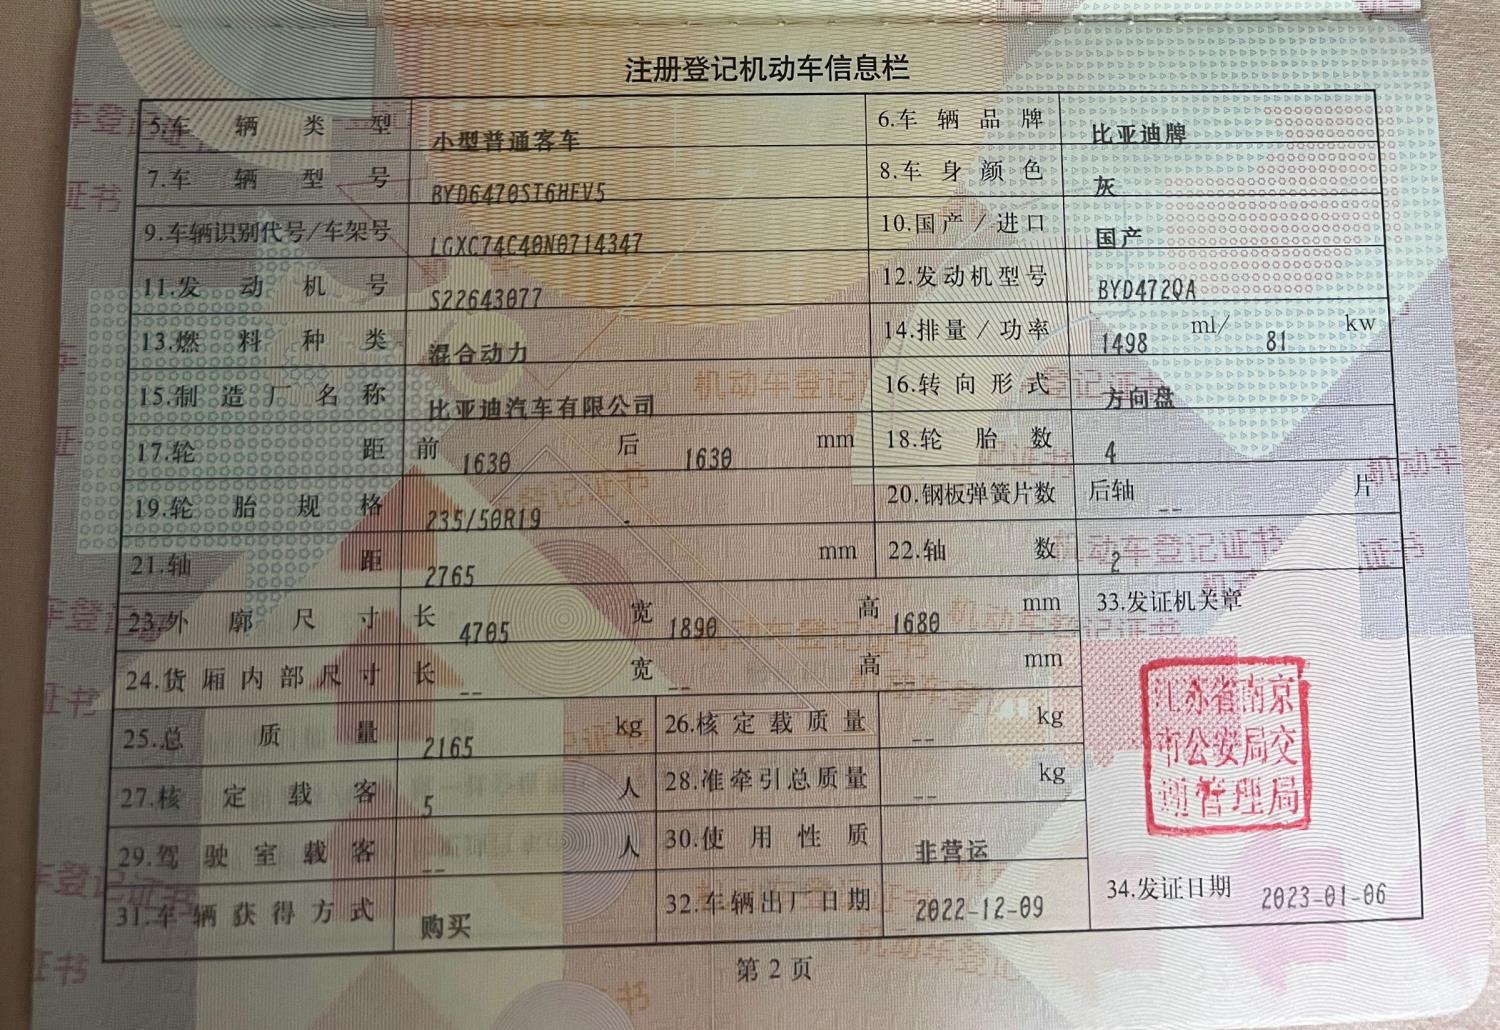 注册登记机动车信息栏
5.车辆类型 小型普通客车 6.车辆品牌 比亚迪牌
7.车辆型号 BYD6470ST6HEV5 8.车身颜色 灰
9.车辆识别代号/车架号 LGXC74C40N0714347 10.国产/进口 国产
11.发动机号 S22643077 12.发动机型号 BYD472QA
13.燃料种类 混合动力 14.排量/功率 1498 ml/ 81 kw
15.制造厂名称 比亚迪汽车有限公司 16.转向形式 方向盘
17.轮距 前 1630 后 1630 mm 18.轮胎数 4
19.轮胎规格 235/50R19 20.钢板弹簧片数 后轴 -- 片
21.轴距 2765 mm 22.轴数 2
23.外廓尺寸 长 4705 宽 1890 高 1680 mm 33.发证机关章
24.货厢内部尺寸 长 -- 宽 -- 高 -- mm
江苏省南京
市公安局交
通管理局
25.总质量 2165 kg 26.核定载质量 -- kg
27.核定载客 5 人 28.准牵引总质量 -- kg
29.驾驶室载客 -- 人 30.使用性质 非营运
31.车辆获得方式 购买 32.车辆出厂日期 2022-12-09 34.发证日期 2023-01-06
第 2 页